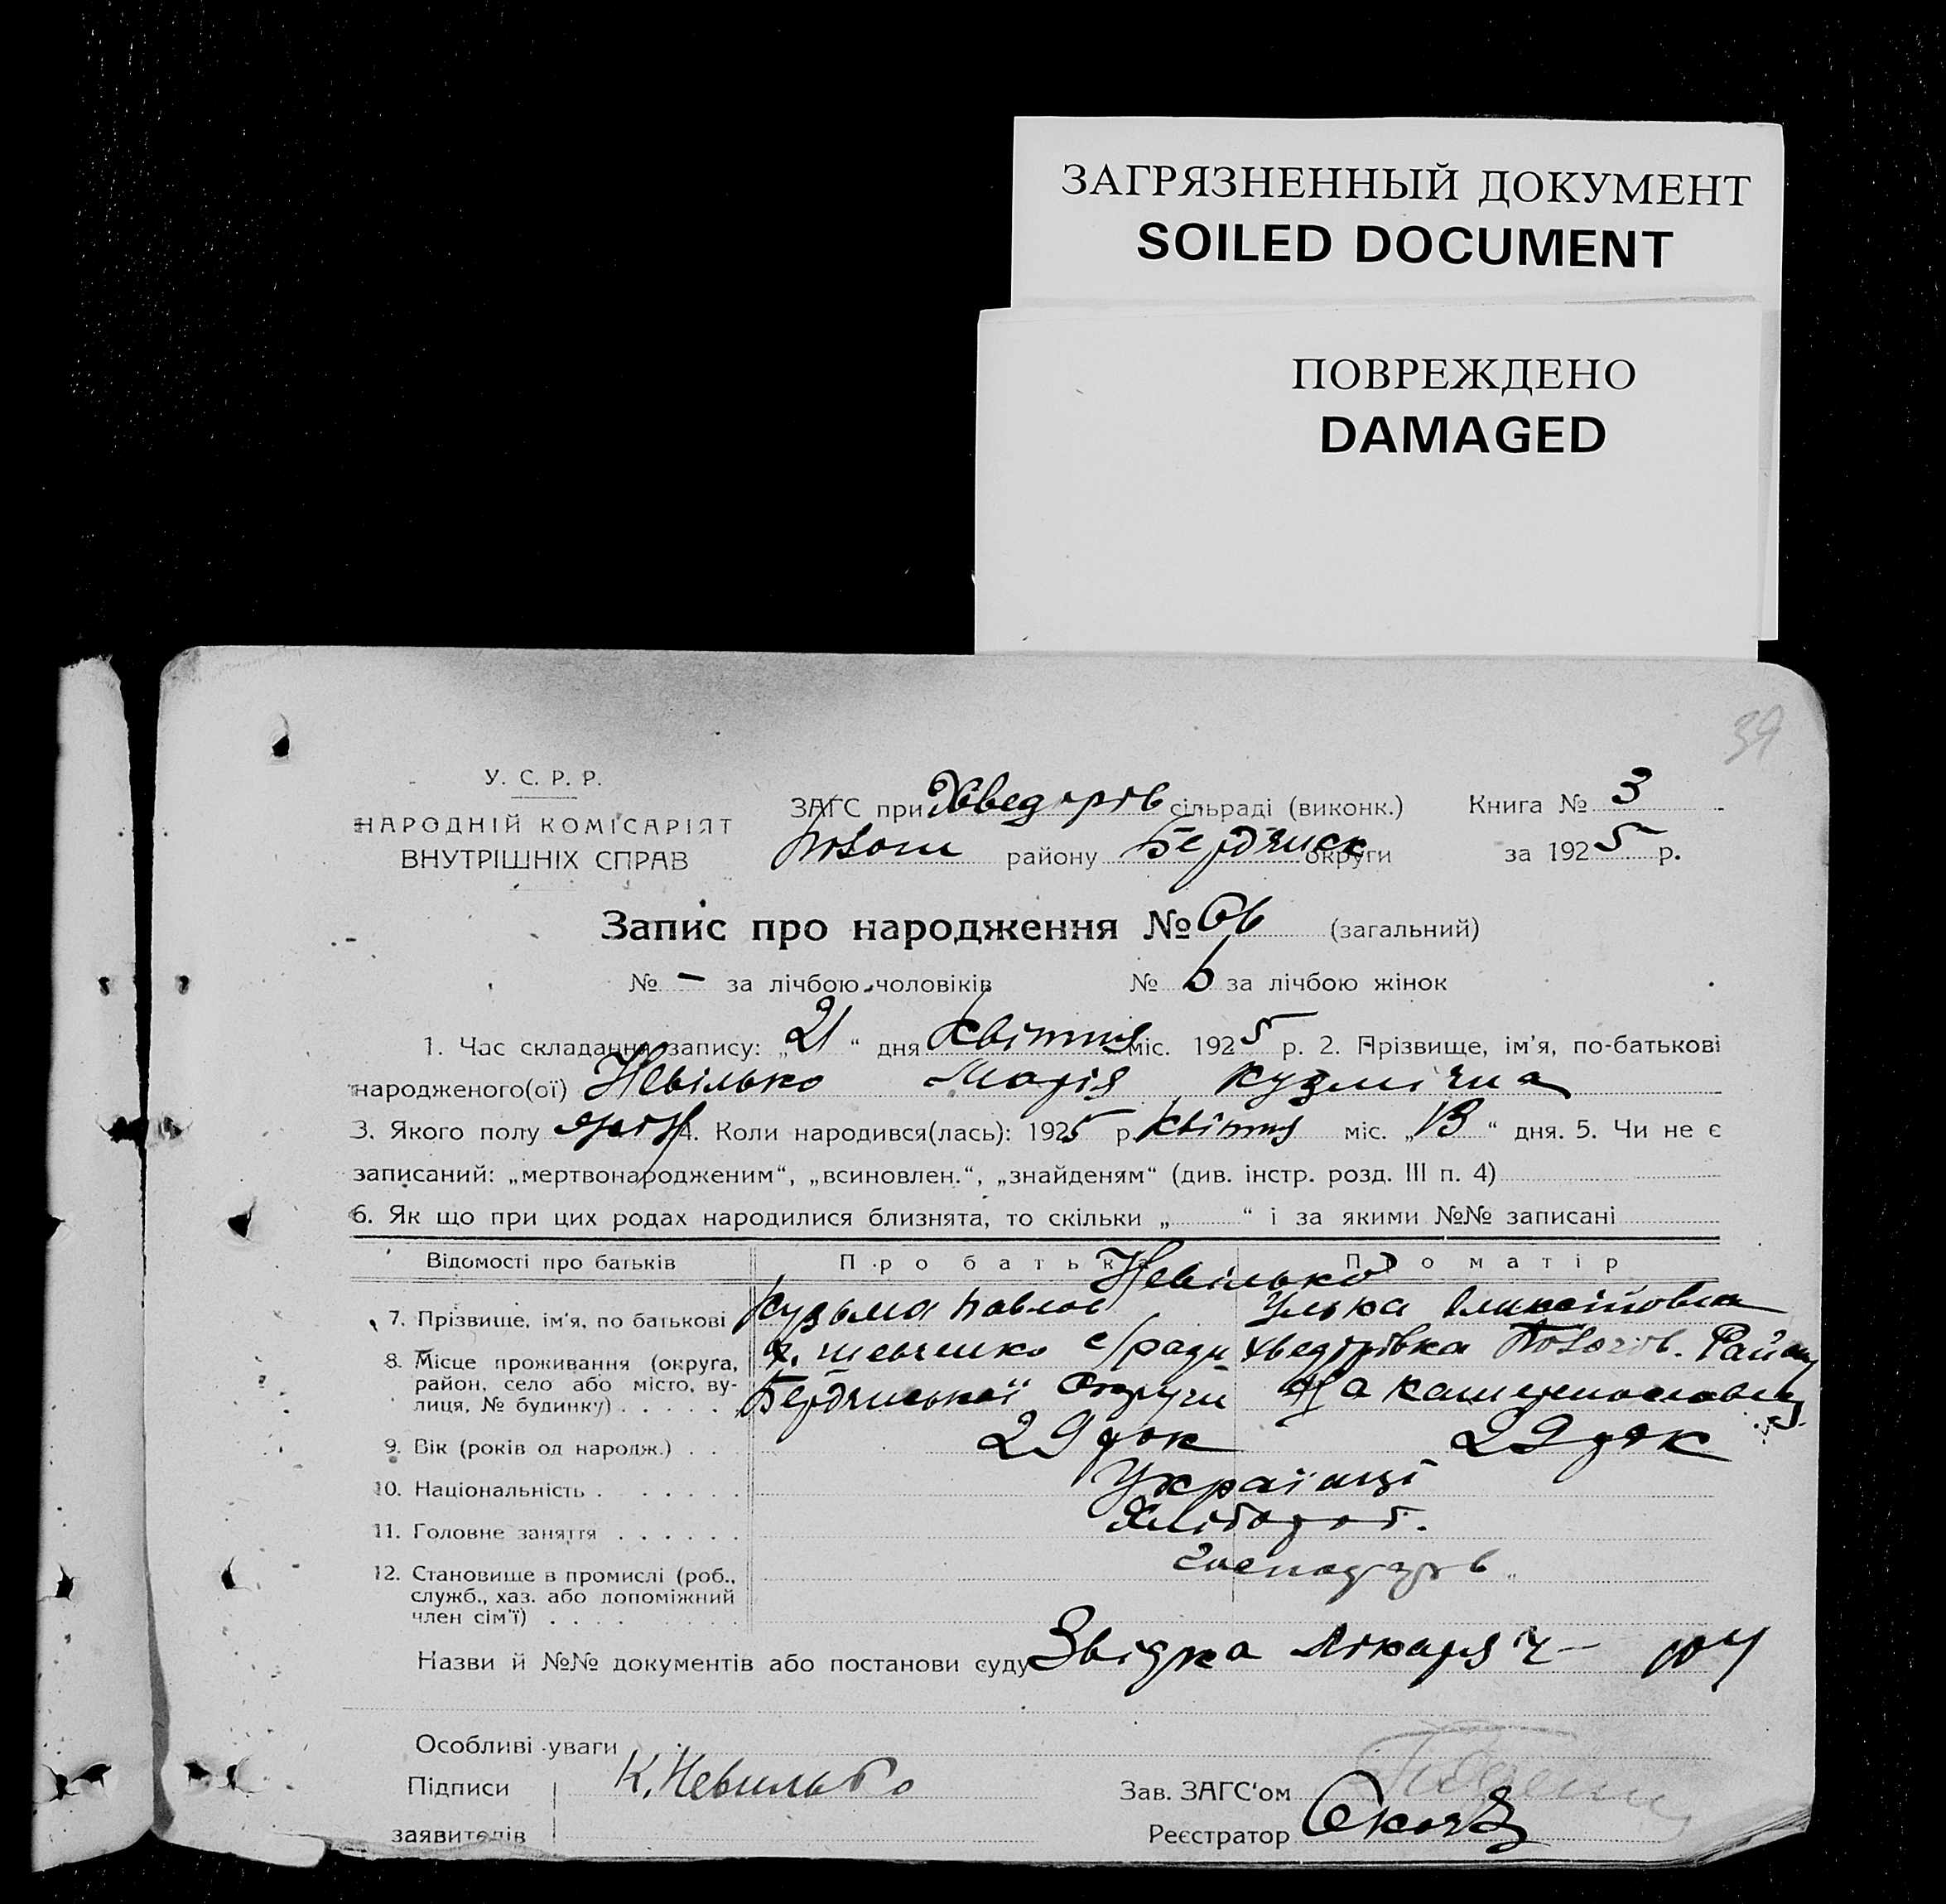 ЗАГРЯЗНЕННЫЙ ДОКУМЕНТ
SOILED DOCUMENT
ПОВРЕЖДЕНО
DAMAGED
39
У. С. Р. Р.
НАРОДНІЙ КОМІСАРІЯТ
ВНУТРІШНІХ СПРАВ
ЗАГС при Хведорів сільраді (виконк.) Книга № 3
району Бердянск округи за 1925 р.
Запис про народження № (загальний)
№ – за лічбою чоловіків № 6 за лічбою жінок
1. Час складання запису: „21“ дня Квітня міс. 1925 р. 2. Прізвище, ім'я, по-батькові
народженого(ої) Невілько Марія Кузмічна
3. Якого полу 4. Коли народився(лась): 1925 р. Квітня міс. „13“ дня. 5. Чи не є
записаний: „мертвонародженим“, „всиновлен.“, „знайденям“ (див. інстр. розд. III п. 4)
6. Як що при цих родах народилися близнята, то скільки „ “ і за якими №№ записані
Відомості про батьків Про батька Про матір
Невілько
7. Прізвище, ім'я, по батькові Кузьма Павлов Улька
8. Місце проживання (округа, район, село або місто, вулиця, № будинку) х. Шевченко с/ради Хведорівка Району
Бердянської Округи На Катеринославщ
9. Вік (років од народж.) 29 рок 29 рок
10. Національність Українці
11. Головне заняття Хлібороб.
12. Становище в промислі (роб., служб., хаз. або допоміжний член сім'ї) Господарів
Назви й №№ документів або постанови суду Звідка Лікаря
Особливі уваги
Підписи К. Невилько Зав. ЗАГС'ом
заявителів Реєстратор